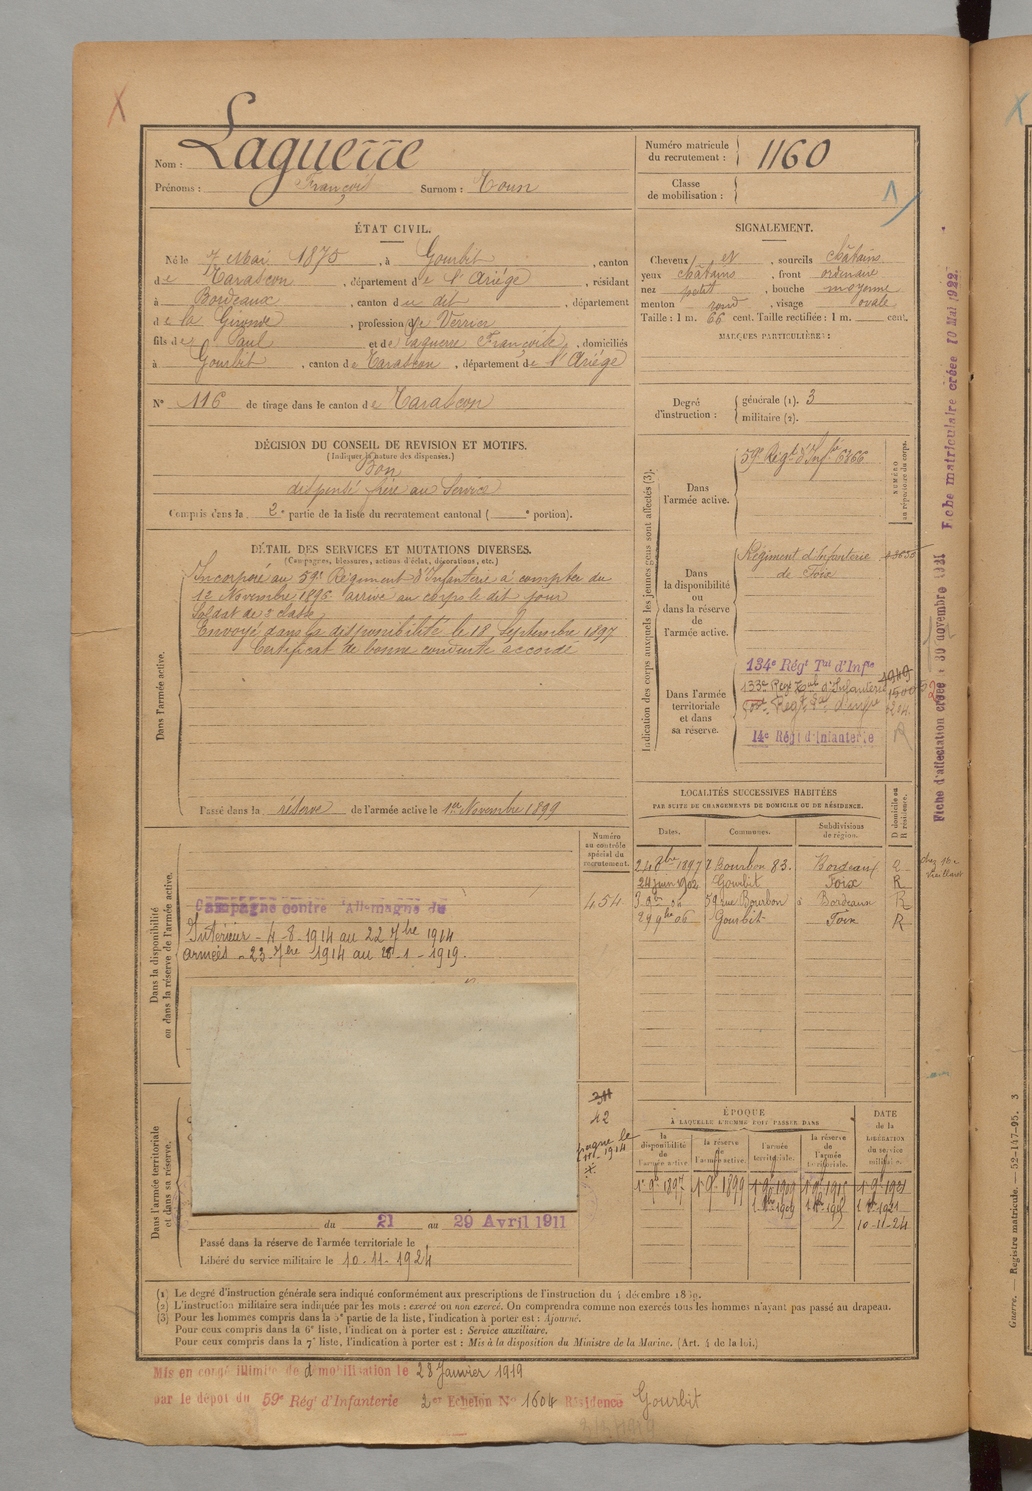 Nom : Laguerre
Prénoms : François Surnom : Toun
Numéro matricule du recrutement : 1160
Classe de mobilisation :
ÉTAT CIVIL.
Né le 7 Mai 1875, à Gourbit, canton
de Tarascon, département de l'Ariége, résidant
à Bordeaux, canton du dit, département
de la Gironde, profession de
fils de Paul et de Laguerre Françoise, domiciliés
à Gourbit, canton de Tarascon, département de l'Ariége
N° 116 de tirage dans le canton de Tarascon
DÉCISION DU CONSEIL DE REVISION ET MOTIFS.
(Indiquer la nature des dispenses.)
Bon
dispensé frère au Service
Compris dans la 2e partie de la liste du recrutement cantonal ( e portion).
DÉTAIL DES SERVICES ET MUTATIONS DIVERSES.
(Campagnes, blessures, actions d'éclat, décorations, etc.)
Dans l'armée active.
Incorporé au 59e Régiment d'Infanterie à compter du
12 Novembre 1896 arrivé au corps le dit jour
Soldat de classe
Envoyé dans la disponibilité le 18 Septembre 1897
Certificat de bonne conduite accordé
Passé dans la réserve de l'armée active le 1er Novembre 1899
Numéro
au contrôle
spécial du
recrutement.
Dans la disponibilité
ou dans la réserve de l'armée active.
454
Campagne contre l'Allemagne du
Intérieur - 4-8-1914 au 22 7bre 1914
armées - 23 7bre 1914 au -1-1919.
Dans l'armée territoriale
et dans sa réserve.
42
du 21 au 29 Avril 1911
Passé dans la réserve de l'armée territoriale le
Libéré du service militaire le 10-11-1924
SIGNALEMENT.
Cheveux et, sourcils châtains
yeux châtains, front ordinaire
nez petit, bouche moyenne
menton rond, visage ovale
Taille : 1 m. 66 cent. Taille rectifiée : 1 m. cent.
MARQUES PARTICULIÈRES :
Degré d'instruction : générale (1). 3
militaire (2).
Indication des corps auxquels les jeunes gens sont affectés (3).
NUMÉRO
au répertoire du corps.
Dans
l'armée active.
59e Régt d'Infie 6366
Dans
la disponibilité
ou
dans la réserve
de
l'armée active.
Régiment d'Infanterie
de Foix
Dans l'armée
territoriale
et dans
sa réserve.
134e Régt Tal d'Infie
133e Régt Tal d'Infanterie
14e Régt d'Infanterie
LOCALITÉS SUCCESSIVES HABITÉES
PAR SUITE DE CHANGEMENTS DE DOMICILE OU DE RÉSIDENCE.
D domicile ou
R résidence.
Dates. Communes. Subdivisions
de région.
24 8bre 1897 r Bourbon 83. Bordeaux R
24 juin 1902 Gourbit Foix R
06 59 rue Bourbon à Bordeaux R
29 9bre 06 Gourbit Foix R
ÉPOQUE
À LAQUELLE L'HOMME DOIT PASSER DANS
DATE
de la
LIBÉRATION
du service
militaire.
la
disponibilité
de
l'armée active
la réserve
de
l'armée active.
l'armée
territoriale.
la réserve
de
l'armée
territoriale.
1er 9bre 1897 1er 9bre 1899 1er 9bre 1909 1er 9bre 1915 1er 9bre 1921
10-11-24
(1) Le degré d'instruction générale sera indiqué conformément aux prescriptions de l'instruction du 4 décembre 1889.
(2) L'instruction militaire sera indiquée par les mots : exercé ou non exercé. On comprendra comme non exercés tous les hommes n'ayant pas passé au drapeau.
(3) Pour les hommes compris dans la 5e partie de la liste, l'indication à porter est : Ajourné.
Pour ceux compris dans la 6e liste, l'indication à porter est : Service auxiliaire.
Pour ceux compris dans la 7e liste, l'indication à porter est : Mis à la disposition du Ministre de la Marine. (Art. 4 de la loi.)
Mis en congé illimité de démobilisation le 28 Janvier 1919
par le dépôt du 59e Régt d'Infanterie Echelon No 1604 Résidence Gourbit
Fiche d'affectation créée : 30 novembre 1921 Fiche matriculaire créée 10 Mai 1922.
Guerre. — Registre matricule. — 52-147-95. 3